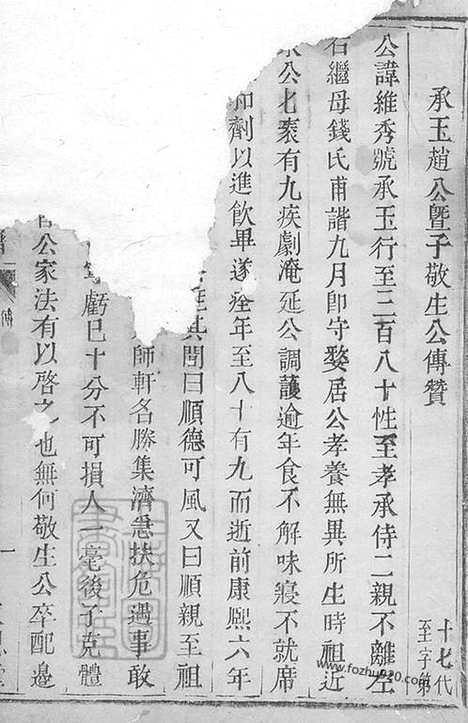 承玉趙公暨子敬生公傳贊
十七代
至字第
公諱維秀號承玉行至二百八十性至孝承侍二親不離左
右繼母錢氏甫諧九月即守嫠居公孝養無異所生時祖近
公七袠有九疾劇淹延公調護逾年食不解味寢不就席
和劑以進飲畢遂痊年至八十有九而逝前康熙六年
其閭曰順德可風又曰順親至祖
師軒名勝集濟急扶危遇事敢
虧已十分不可損人一毫後子克體
公家法有以啓之也無何敬生公卒配邊
傳
一
www.fozhu920.com